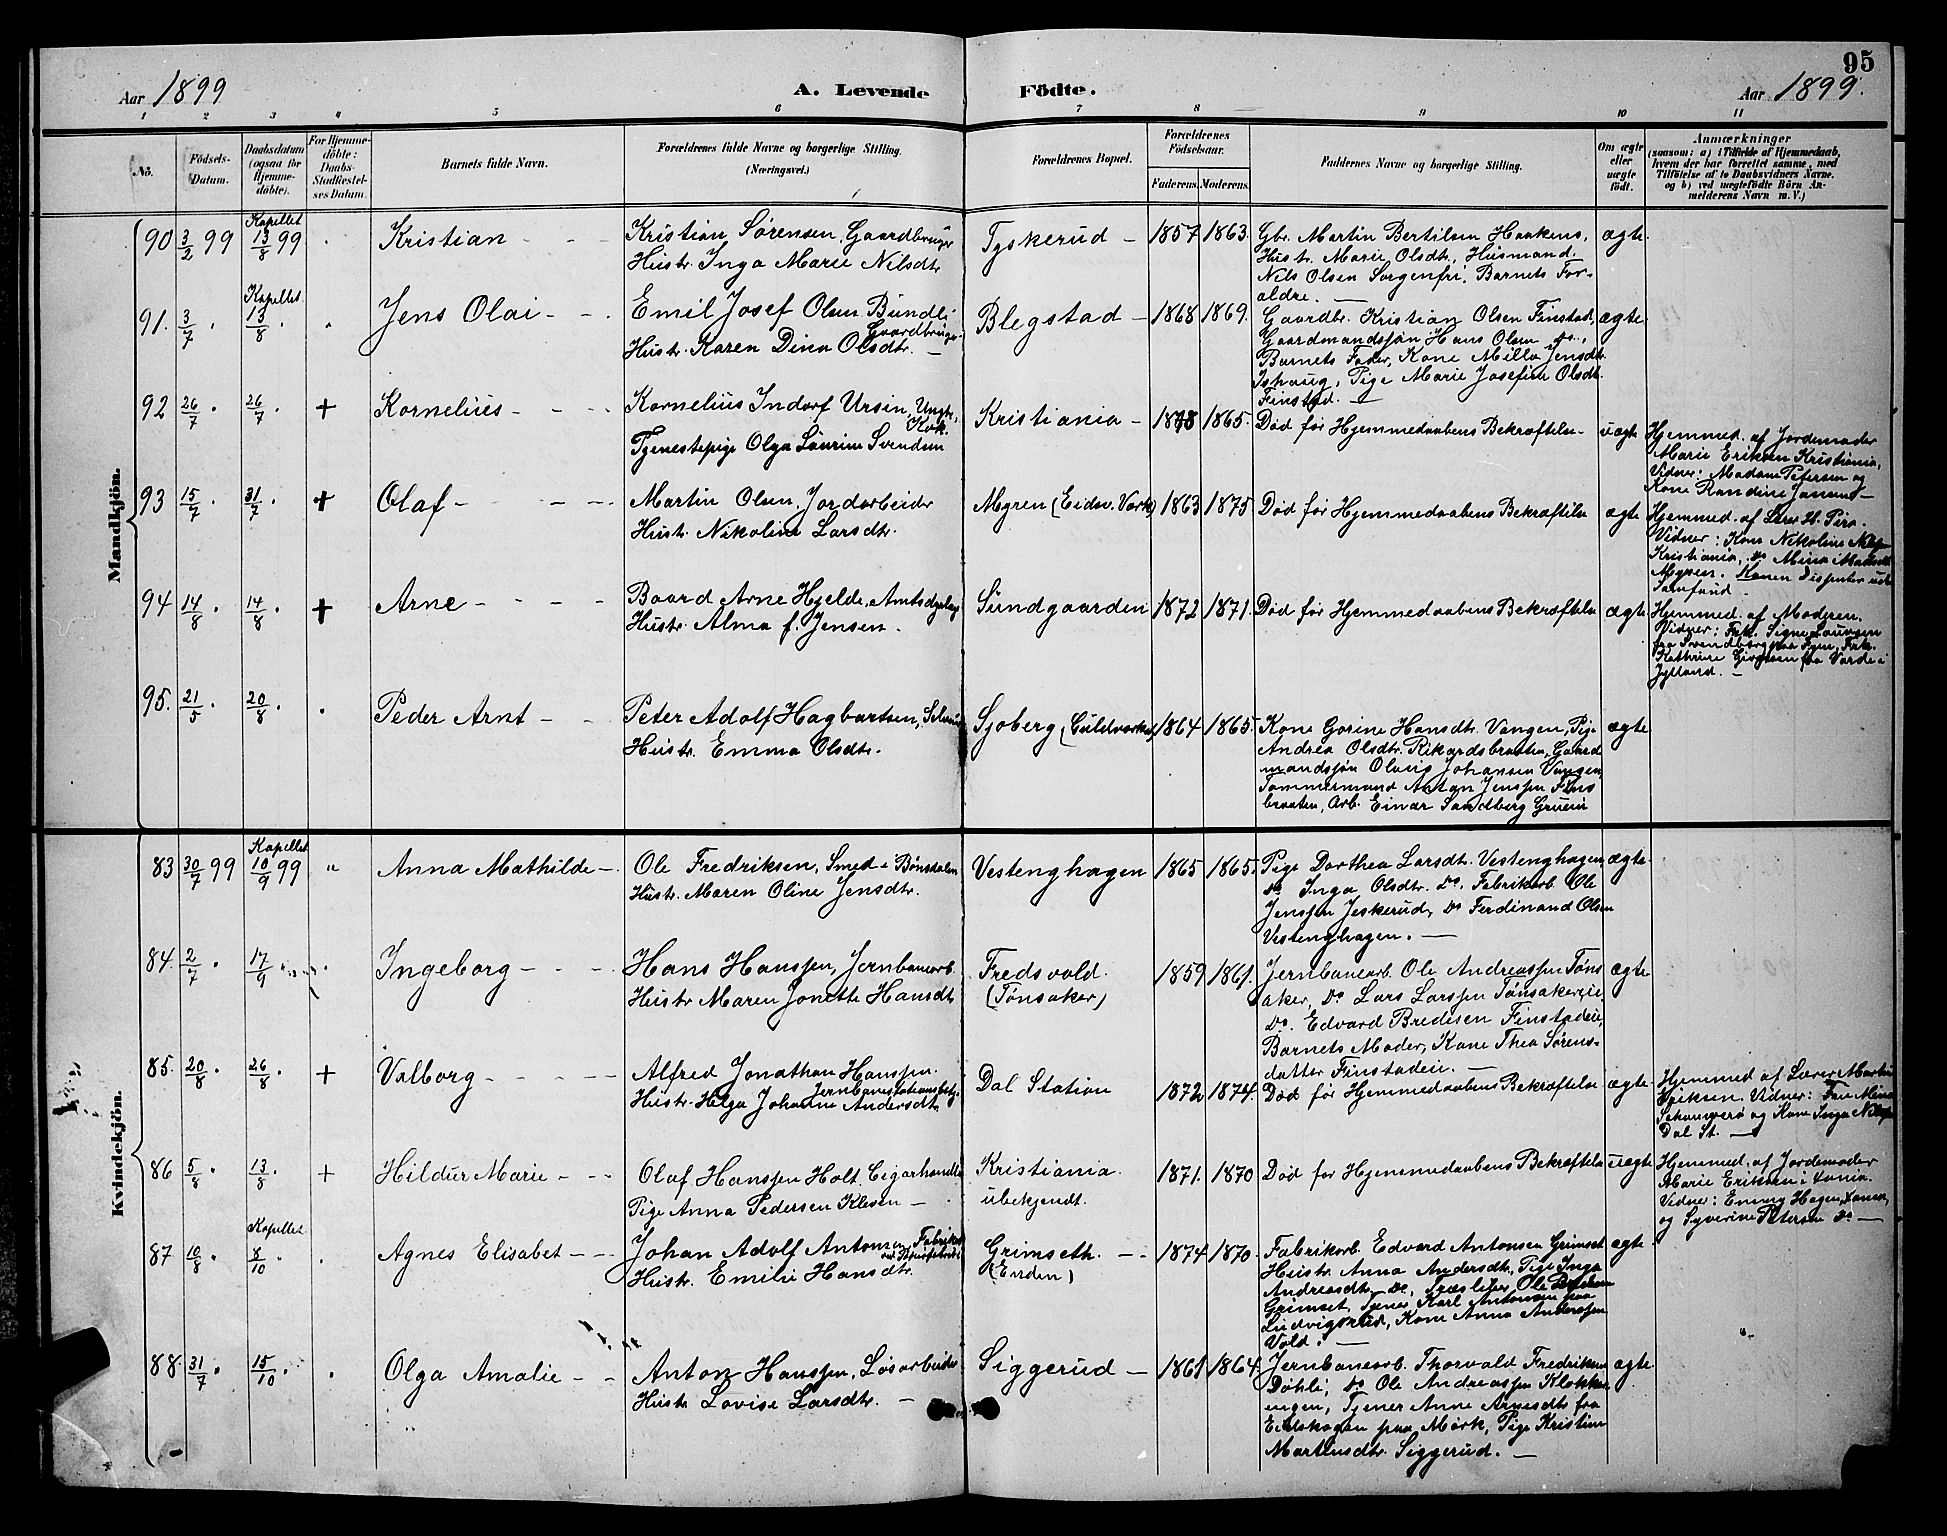 95
Aar 1899
A. Levende
Födte.
Aar 1899.
1 2 3 4 5 6 7 8 9 10 11
No.
Födsels-
Datum.
Daabsdatum
(ogsaa for
Hjemme-
döbte).
For Hjemme-
döbte:
Daabs-
Stadfæstel-
ses Datum.
Barnets fulde Navn.
Forældrenes fulde Navne og borgerlige Stilling.
(Næringsvei.)
Forældrenes Bopæl.
Forældrenes
Födselsaar.
Faderens. Moderens.
Faddernes Navne og borgerlige Stilling.
Om ægte
eller
uægte
födt.
Anmærkninger
(saasom: a) i Tilfælde af Hjemmedaab,
hvem der har forrettet samme, med
Tilföielse af to Daabsvidners Navne.
og b) ved uægtefödte Börn An-
melderens Navn m. V.)
Mandkjön.
90 3/2 99 Kapellet 13/8 99
Kristian
Kristian Sørensen, Gaardbruger
Hustr. Inga Marie Nilsdtr
Tyskerud
1857 1863.
Gbr. Martin Bertilsen Haakens,
Hustr. Marie Olsdtr, Husmand
Nils Olsen Sorgenfri, Barnets For-
ældre.
ægte.
91. 3/7 Kapellet 13/8
Jens Olai
Emil Josef Olsen Bundli
Gaardbruger
Hustr. Karen Dina Olsdtr.
Blegstad
1868 1869.
Gaardbr. Kristian Olsen Finstad,
Gaardmandssøn Hans Olsen Do.,
Barnets Fader, Kone Milla Jensdtr.
Ishaug, Pige Marie Josefine Olsdtr.
Finstad.
ægte
92 26/7 26/7 +
Kornelius
Kornelius Indorf Ursin, Ungk.
Kok.
Tjenestepige Olga Laurine Svendsen
Kristiania
1878 1865.
Død før Hjemmedaabens Bekræftelse
uægte
Hjemmed. af Jordemoder
Marie Eriksen Kristiania,
Vidner: Madam Petersen og
Kone Randine Jansen
93 15/7 31/7 +
Olaf
Martin Olsen, Jordarbeider
Hustr. Nikoline Larsdtr.
Myren (Eidsv. Værk)
1863 1875
Død før Hjemmedaabens Bekræftelse
ægte
Hjemmed. af Lærer H. Piro.
Vidner: Kone Nikoline
Kristiania, Do Mina
Myren. Konen Dispenter
Samfund.
94 14/8 14/8 +
Arne
Baard Arne Hjelde, Amtsdyrlæg
Hustr. Alma f. Jensen.
Sundgaarden
1872 1871.
Død før Hjemmedaabens Bekræftelse
ægte
Hjemmed. af Moderen.
Vidner: Frk. Signe Laursen
fra Svendborg paa Fyen, Frk.
Kathrine fra Varde i
Jylland.
95. 21/5 20/8
Peder Arnt
Peter Adolf Hagbartsen,
Hustr. Emma Olsdtr.
Sjoberg (Guldverket)
1864 1865.
Kone Gorine Hansdtr. Vangen, Pige
Andrea Olsdtr. Rikardsbraaten, Gaard
mandssøn Olaus Johansen Vangen,
Tømmermand Anton Jenssen Fins
braaten, Arb. Einar Sandberg
ægte
Kvindekjön.
83 30/7 99 Kapellet 10/9 99 "
Anna Mathilde
Ole Fredriksen, Smed i Bønsdalen
Hustr. Maren Oline Jensdtr.
Vestenghagen
1865 1865.
Pige Dorthea Larsdtr. Vestenghagen,
Do Inga Olsdtr. Do. Fabrikarb. Ole
Jenssen Jeskerud, Do Ferdinand Olsen
Vestenghagen.
ægte
84. 2/7 17/9
Ingeborg
Hans Hanssen, Jernbanearb.
Hustr Maren Jonette Hansdtr
Fredsvold.
(Tønsaker)
1859 1861.
Jernbanearb. Ole Andreassen Tøns
aker, Do Lars Larssen Tønsakereie,
Do. Edvard Bredesen Finstadeie,
Barnets Moder, Kone Thea Sørens-
datter Finstadeie.
ægte
85. 20/8 26/8 +
Valborg
Alfred Jonathan Hanssen.
Jernbanestationsbetj.
Hustr. Helga Johanne Andersdtr
Dal Station
1872 1874.
Død før Hjemmedaabens Bekræftelse
ægte
Hjemmed af Lærer Martin
Eriksen. Vidner: Frue
og Kone Inga
Dal St.
86 5/8 13/8 +
Hildur Marie
Olaf Hanssen Holt, Cigarhandler
Pige Anna Pedersen
Kristiania.
ubekjendt.
1871. 1870
Død før Hjemmedaabens Bekræftelse
uægte
Hjemmed. af Jordemoder
Marie Eriksen i Xania.
Vidner: Emmy Hagen, Xania,
og Syverine Petersen Do
87 10/8 Kapellet 8/10
Agnes Elisabet
Johan Adolf Antonsen, Fabrikarb
Hustr. Emilie Hansdtr.
Grimseth.
1874 1870.
Fabrikarb. Edvard Antonsen Grimset
Hustr. Anna Andersdtr, Pige Inga
Andreasdtr Do, Træsliber Ole
Grimset, Tjener Karl Antonsen paa
Ludvigsrud, Kone Anna Anderssen
Vold.
ægte
88. 31/7 15/10
Olga Amalie
Anton Hanssen, Løsarbeider
Hustr Lovise Larsdtr.
Siggerud
1861 1864
Jernbanearb. Thorvald Fredriksen
Døhli, Do Ole Andreassen Klokker
engen, Tjener Anne Arnesdtr fra
Eidskogen paa Mørk, Pige Kristine
Martinsdtr. Siggerud.
ægte.